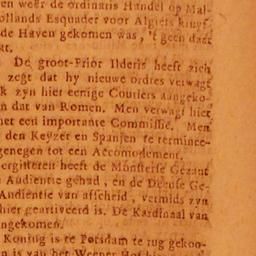 en weer de ordinaris Handel op Mal-
ollands Esquader voor Algiers kruyst
de Haven gekomen was, 't geen daer
kt.
De groot-Prior Ilderis heeft zich
zegt dat hy nieuwe ordres verwagt
k zyn hier eenige Couriers aangeko-
n dat van Romen. Men verwagt hier
met een importante Commissie. Men
den Keyzer en Spanjen te terminee-
genegen tot een Accomodement.
ergisteren heeft de Munsterse Gezant
Audientie gehad, en de Deense Ge-
Audientie van afscheid, vermids zyn
hier gearriveerd is. De Kardinaal van
ngekomen.
Koning is te Potsdam te rug gekoo-
n is van het Weener Hof